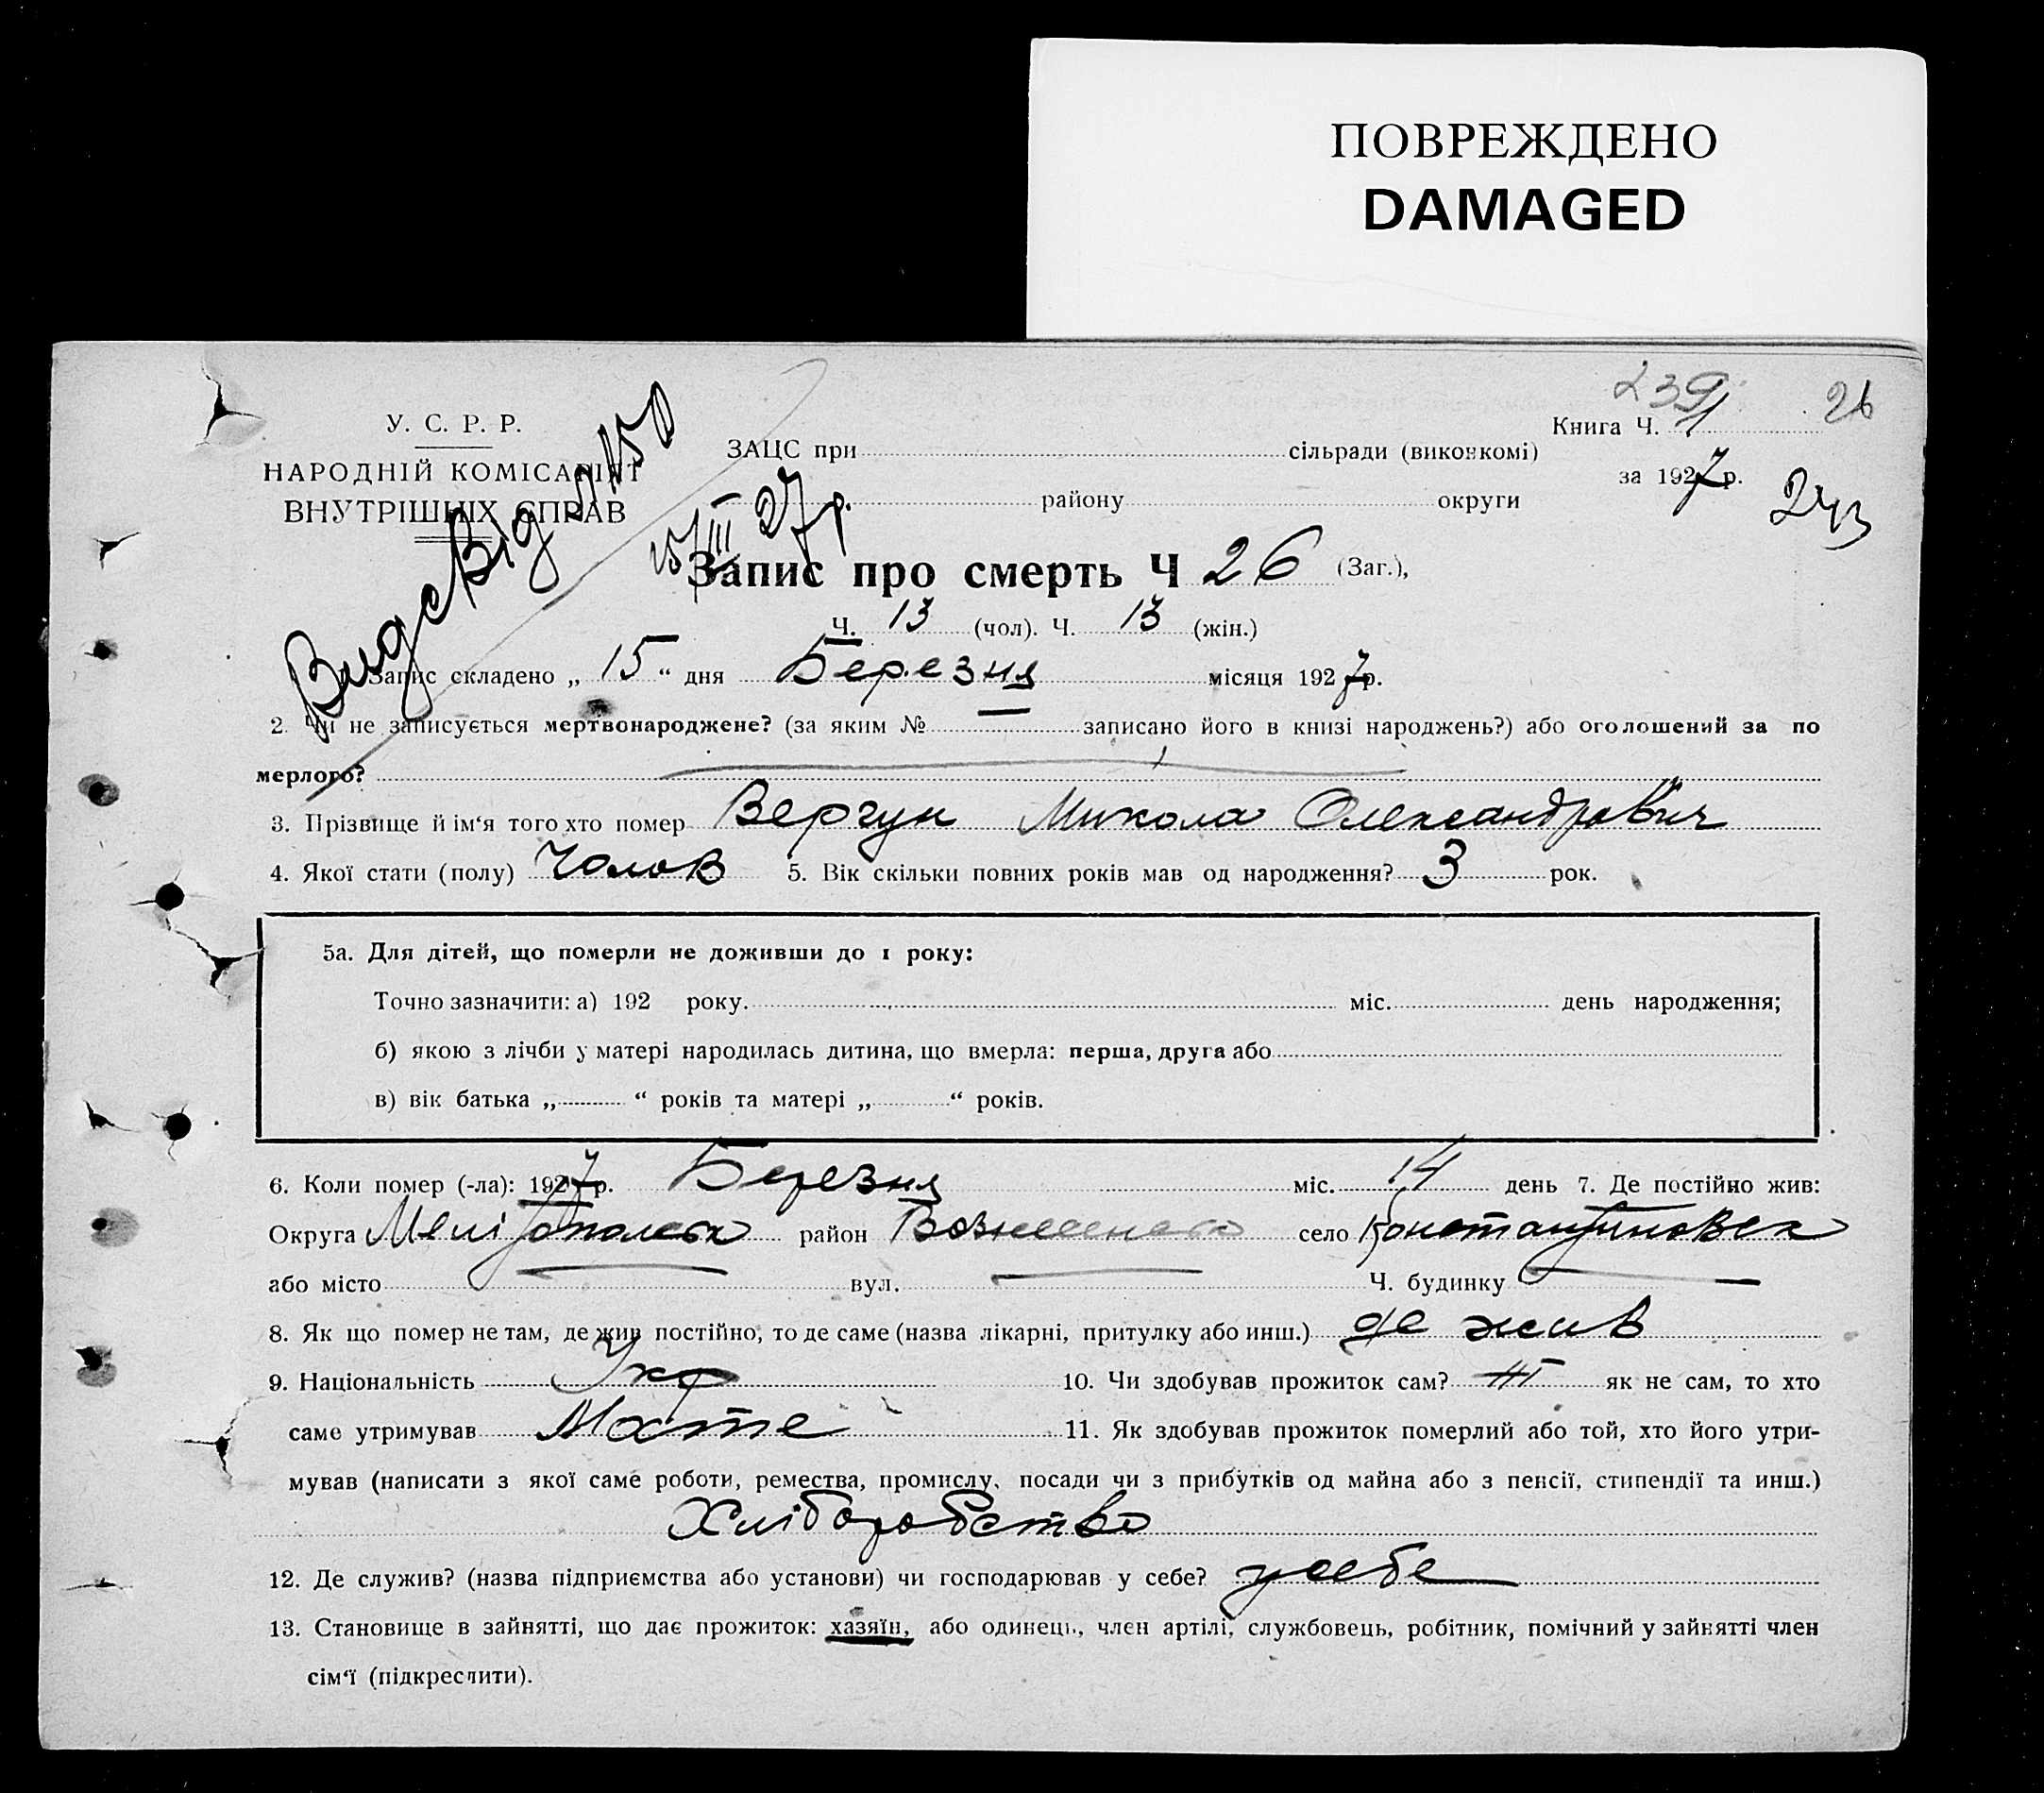 ПОВРЕЖДЕНО
DAMAGED
239 26
У. С. Р. Р.
Книга Ч. 1
ЗАЦС при сільради (виконкомі)
НАРОДНІЙ КОМІСАРІЯТ
за 1927 р.
ВНУТРІШНІХ СПРАВ
району округи
243
15/III 27 р.
Запис про смерть Ч 26 (Заг.),
Ч. 13 (чол). Ч. 13 (жін.)
Запис складено „ 15 “ дня Березня місяця 1927 р.
2. Чи не записується мертвонароджене? (за яким № — записано його в книзі народжень?) або оголошений за по
мерлого?
3. Прізвище й ім‘я того хто помер Вергун Микола Олександрович
4. Якої стати (полу) Чолов 5. Вік скільки повних років мав од народження? 3 рок.
5а. Для дітей, що померли не доживши до 1 року:
Точно зазначити: а) 192 року. міс. день народження;
б) якою з лічби у матері народилась дитина, що вмерла: перша, друга або
в) вік батька „ “ років та матері „ “ років.
6. Коли помер (-ла): 1927 р. Березня міс. 14 день 7. Де постійно жив:
Округа Мелітопольск район Вознесенськ село Константиновск
або місто — вул. — Ч. будинку —
8. Як що помер не там, де жив постійно, то де саме (назва лікарні, притулку або инш.) де жив
9. Національність Укр 10. Чи здобував прожиток сам? ні як не сам, то хто
саме утримував Мате 11. Як здобував прожиток померлий або той, хто його утри-
мував (написати з якої саме роботи, ремества, промислу, посади чи з прибутків од майна або з пенсії, стипендії та инш.)
Хліборобство
12. Де служив? (назва підприємства або установи) чи господарював у себе? у себе
13. Становище в зайнятті, що дає прожиток: хазяїн, або одинець, член артілі, службовець, робітник, помічний у зайнятті член
сім‘ї (підкреслити).